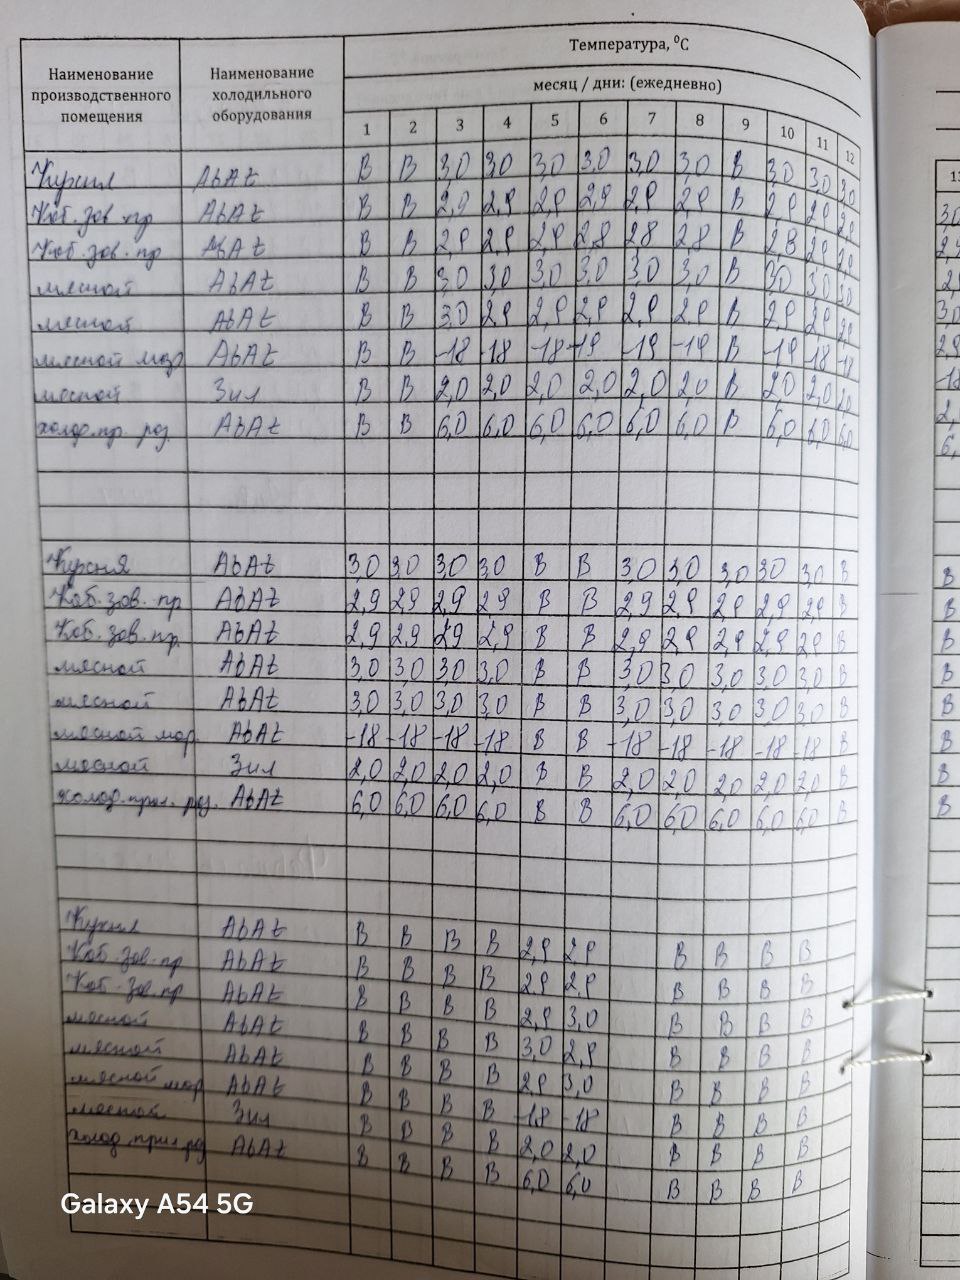 Температура, ⁰С
Наименование производственного помещения Наименование холодильного оборудования месяц / дни: (ежедневно)
1 2 3 4 5 6 7 8 9 10 11 12
Кухня AbAt В В 3,0 3,0 3,0 3,0 3,0 3,0 В 3,0 3,0 3,0
Хоб. зов. пр AbAt В В 2,9 2,9 2,9 2,9 2,9 2,9 В 2,9 2,9 2,9
Хоб. зов. пр AbAt В В 2,9 2,9 2,9 2,8 2,8 2,8 В 2,8 2,9 2,0
мясной AbAt В В 3,0 3,0 3,0 3,0 3,0 3,0 В 3,0 3,0 3,0
мясной AbAt В В 3,0 2,9 2,9 2,9 2,9 2,9 В 2,9 2,9 2,9
мясной мор AbAt В В -18 -18 -18 -19 -19 -19 В -19 -18 -18
мясной Зил В В 2,0 2,0 2,0 2,0 2,0 2,0 В 2,0 2,0 2,0
холод. пр. роз. AbAt В В 6,0 6,0 6,0 6,0 6,0 6,0 В 6,0 6,0 6,0
Кухня AbAt 3,0 3,0 3,0 3,0 В В 3,0 3,0 3,0 3,0 3,0 В
Хоб. зов. пр AbAt 2,9 2,9 2,9 2,9 В В 2,9 2,9 2,9 2,9 2,9 В
Хоб. зов. пр. AbAt 2,9 2,9 2,9 2,9 В В 2,9 2,9 2,9 2,9 2,9 В
мясной AbAt 3,0 3,0 3,0 3,0 В В 3,0 3,0 3,0 3,0 3,0 В
мясной AbAt 3,0 3,0 3,0 3,0 В В 3,0 3,0 3,0 3,0 3,0 В
мясной мор. AbAt -18 -18 -18 -18 В В -18 -18 -18 -18 -18 В
мясной Зил 2,0 2,0 2,0 2,0 В В 2,0 2,0 2,0 2,0 2,0 В
холод. прил. роз. AbAt 6,0 6,0 6,0 6,0 В В 6,0 6,0 6,0 6,0 6,0 В
Кухня AbAt В В В В 2,9 2,9 В В В В
Хоб. зов. пр AbAt В В В В 2,9 2,9 В В В В
Хоб. зов. пр AbAt В В В В 2,9 3,0 В В В В
мясной AbAt В В В В 3,0 2,9 В В В В
мясной AbAt В В В В 2,9 3,0 В В В В
мясной мор AbAt В В В В -18 -18 В В В В
мясной Зил В В В В 2,0 2,0 В В В В
холод. прил. роз AbAt В В В В 6,0 6,0 В В В В
Galaxy A54 5G